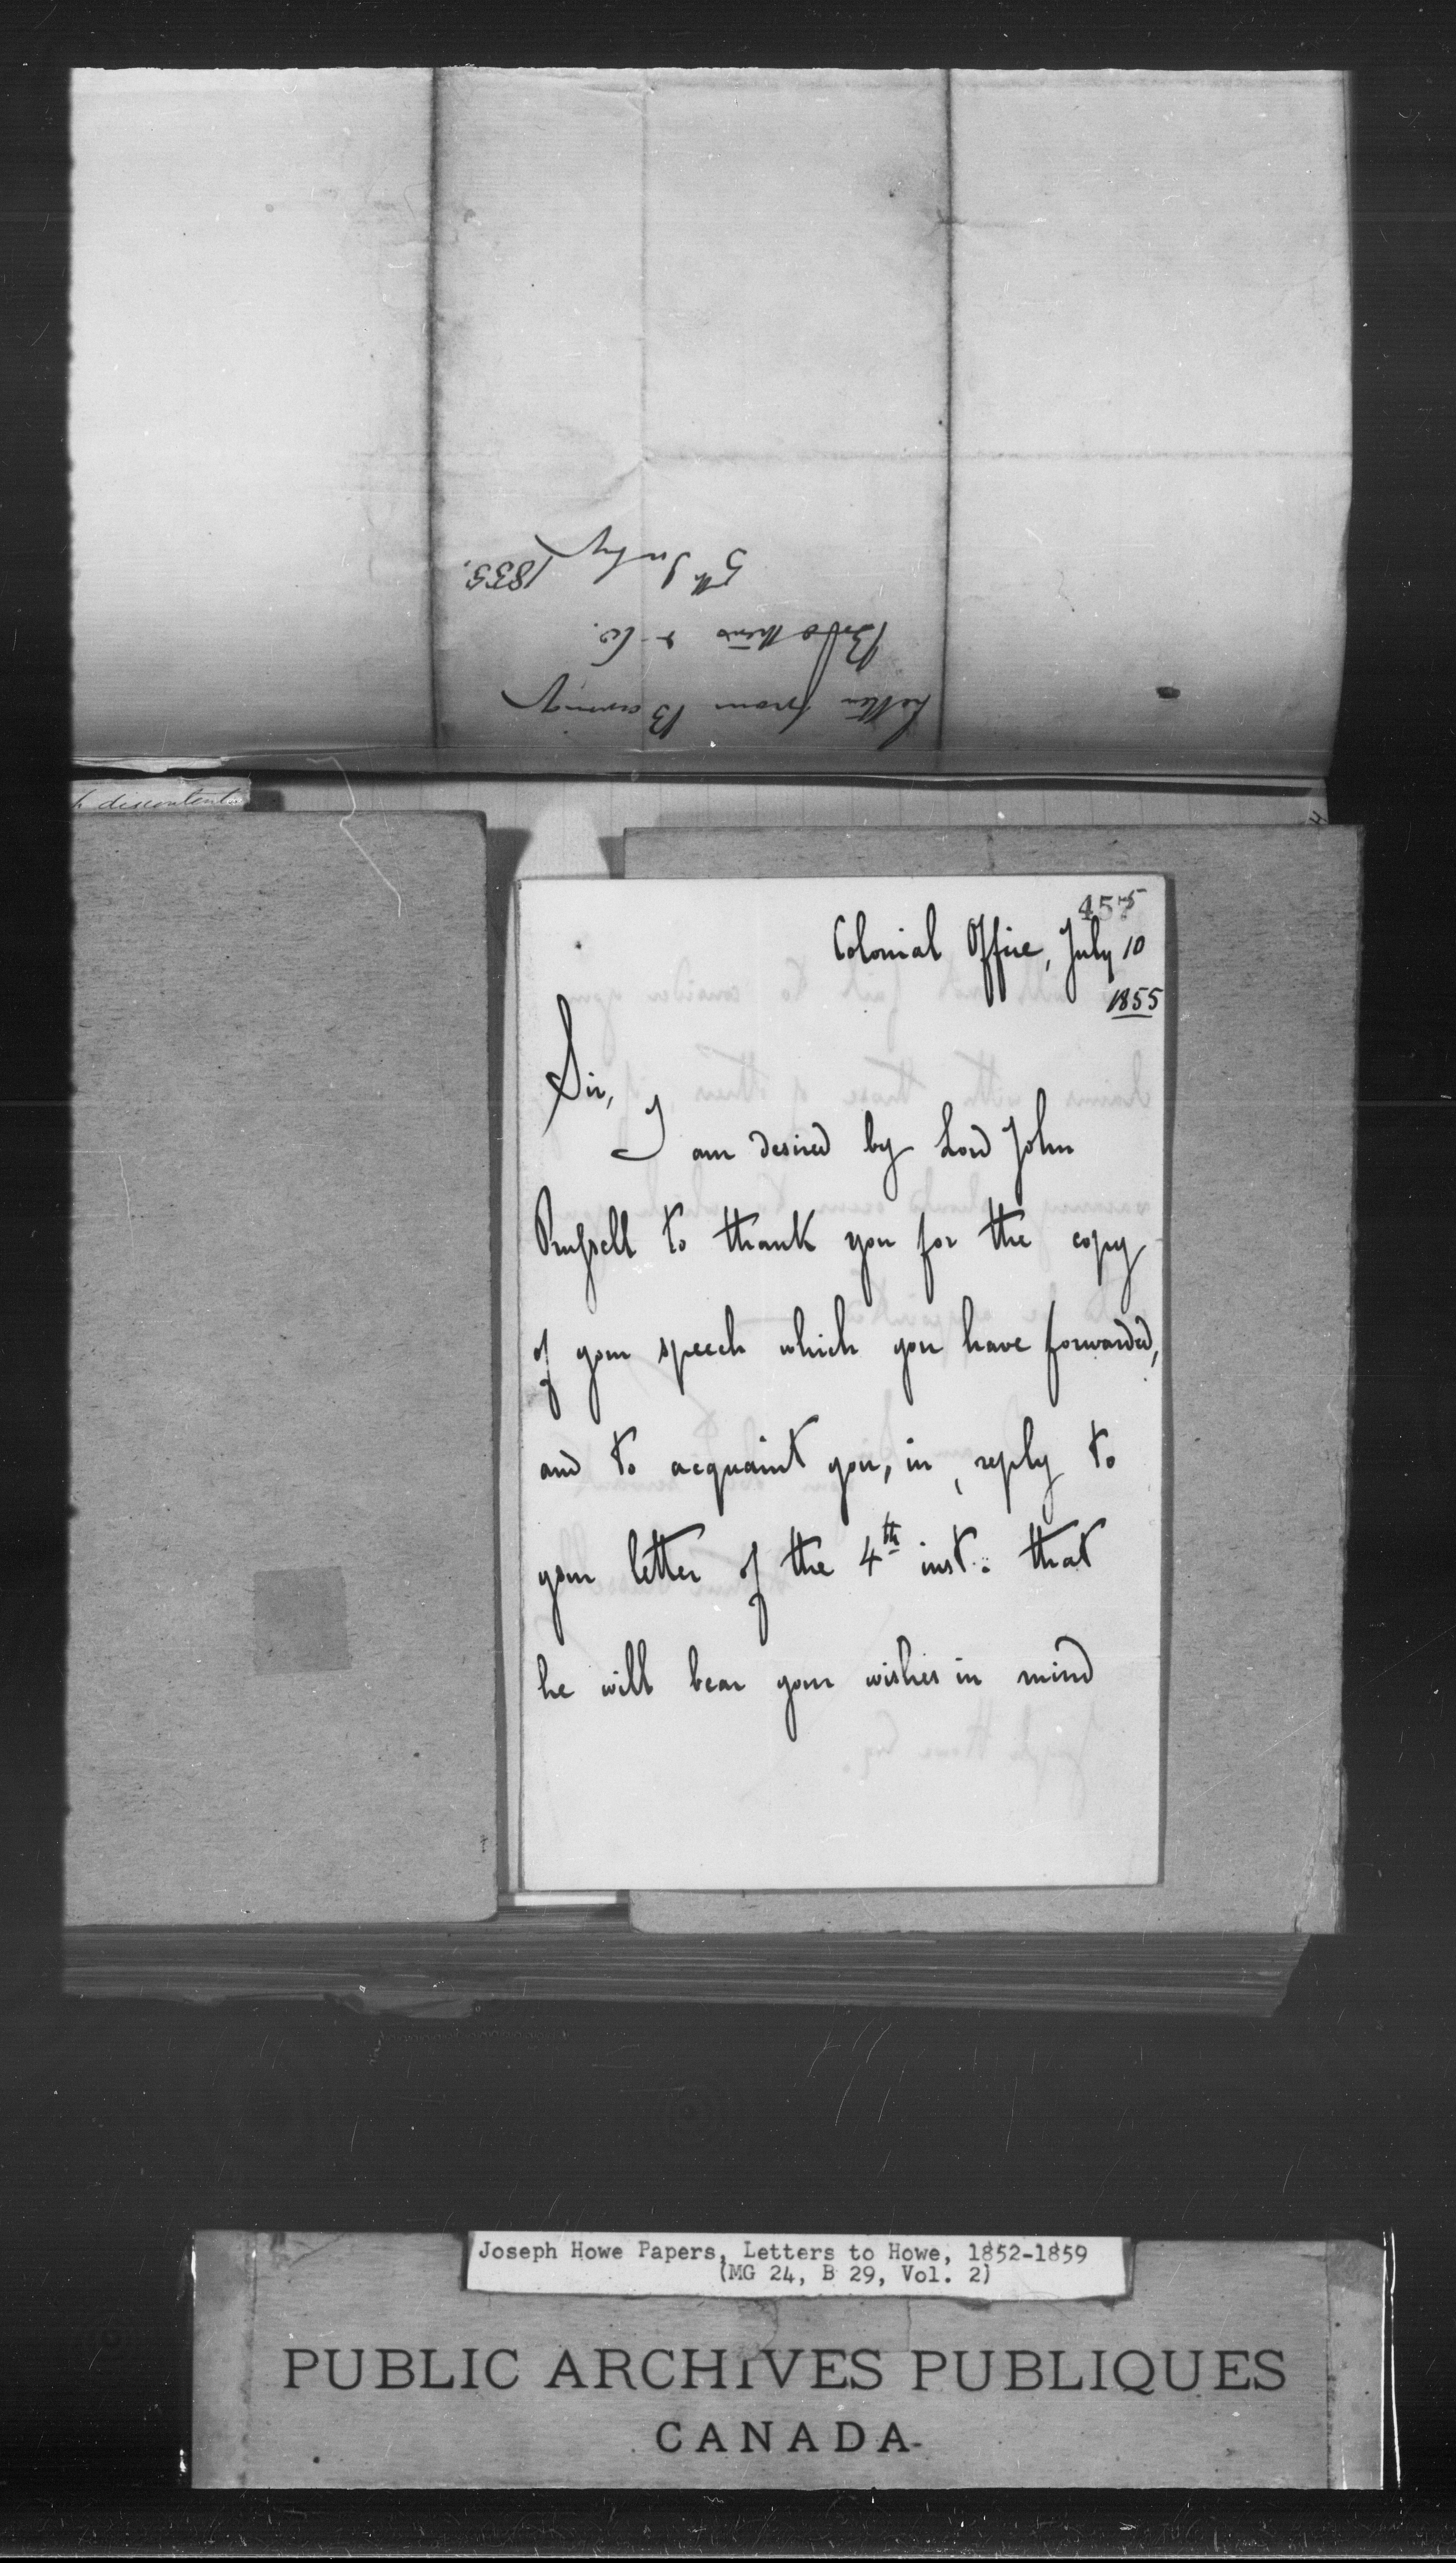 Letter from Baring
Brothers & Co.
5th July 1855.
discontent
457
Colonial Office, July 10
1855
Sir,
I am desired by Lord John
Russell to thank you for the copy
of your speech which you have forwarded,
and to acquaint you, in reply to
your letter of the 4th inst: that
he will bear your wishes in mind
Joseph Howe Papers, Letters to Howe, 1852-1859
(MG 24, B 29, Vol. 2)
PUBLIC ARCHIVES PUBLIQUES
CANADA